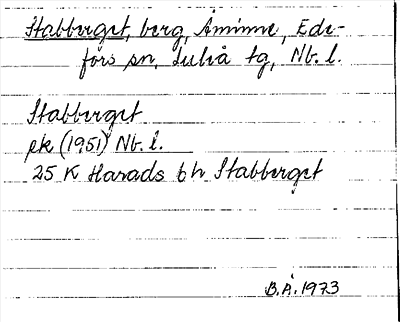 Stabberget, berg, Åminne, Ede-
fors sn, Luleå tg, Nb. l.
Stabberget
pk (1951) Nb. l.
25 K Harads 6 h Stabberget
B.Å. 1973